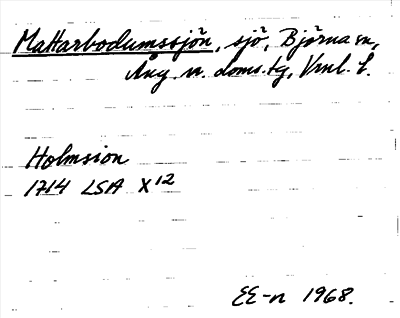 Mattarbodumssjön, sjö, Björna sn,
Ång. n. doms.tg, Vrnl. l.
Holmsion
1714 LSA X12
EE-n 1968.